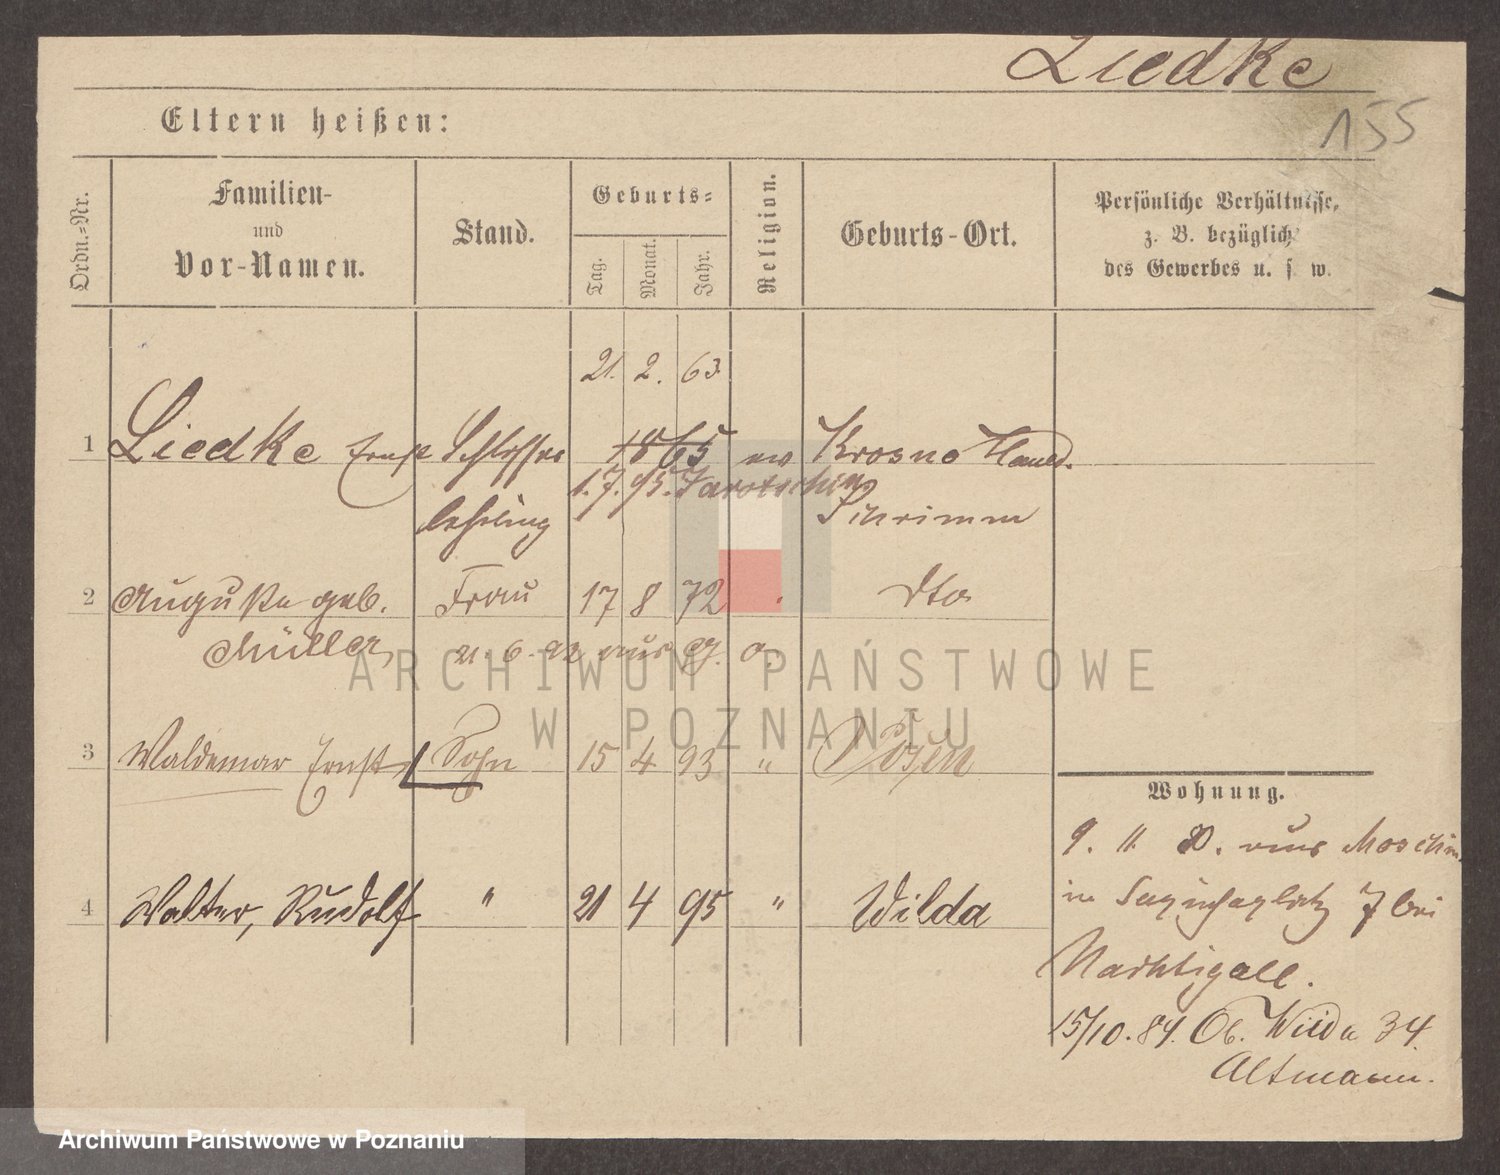 Liedke
155
Eltern heißen:
Ordn.-Nr.
Familien-
und
Vor-Namen.
Stand.
Geburts-
Tag.
Monat.
Jahr.
Religion.
Geburts-Ort.
Persönliche Verhältnisse,
z. B. bezüglich
des Gewerbes u. s. w.
21. 2. 63.
1 Liedke Ernst Schlosser 1865 ev Krosno Hauld.
1. 7. 95. Jarotschin
lehrling Schrimm
2 Auguste geb. Frau 17 8 72 " dto
Müller 21. 6. 92 aus
3 Waldemar Ernst Sohn 15 4 93 " Posen
4 Walter, Rudolf " 21 4 95 " Wilda
Wohnung.
9. 11. 80. aus Moschin
in Sapiehaplatz 7 bei
Nachtigall.
15/10. 84. Ob. Wilda 34.
Altmann.
ARCHIWUM PAŃSTWOWE
W POZNANIU
Archiwum Państwowe w Poznaniu